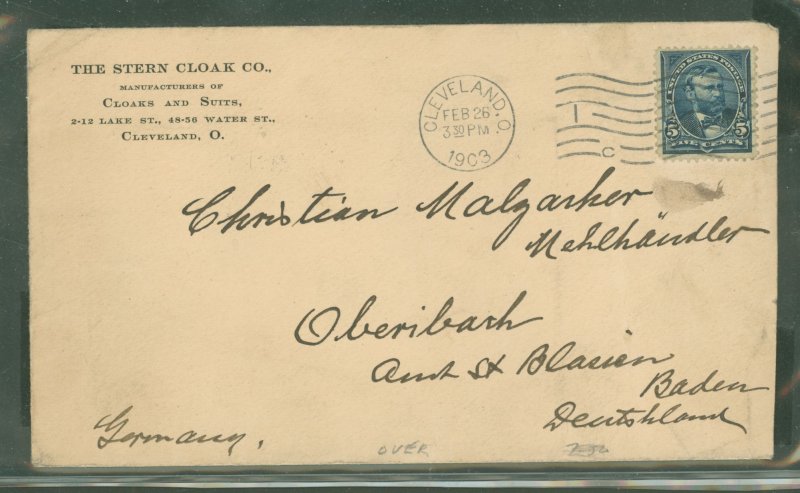 THE STERN CLOAK CO.,
MANUFACTURERS OF
CLOAKS AND SUITS,
2-12 LAKE ST., 48-56 WATER ST.,
CLEVELAND, O.
CLEVELAND, O.
FEB 26
3 30 PM
1903
1
C
UNITED STATES POSTAGE
5 5
FIVE CENTS
Christian Malzacher
Mehlhändler
Oberibach
Amt St Blasien
Baden
Deutshland
Germany.
OVER